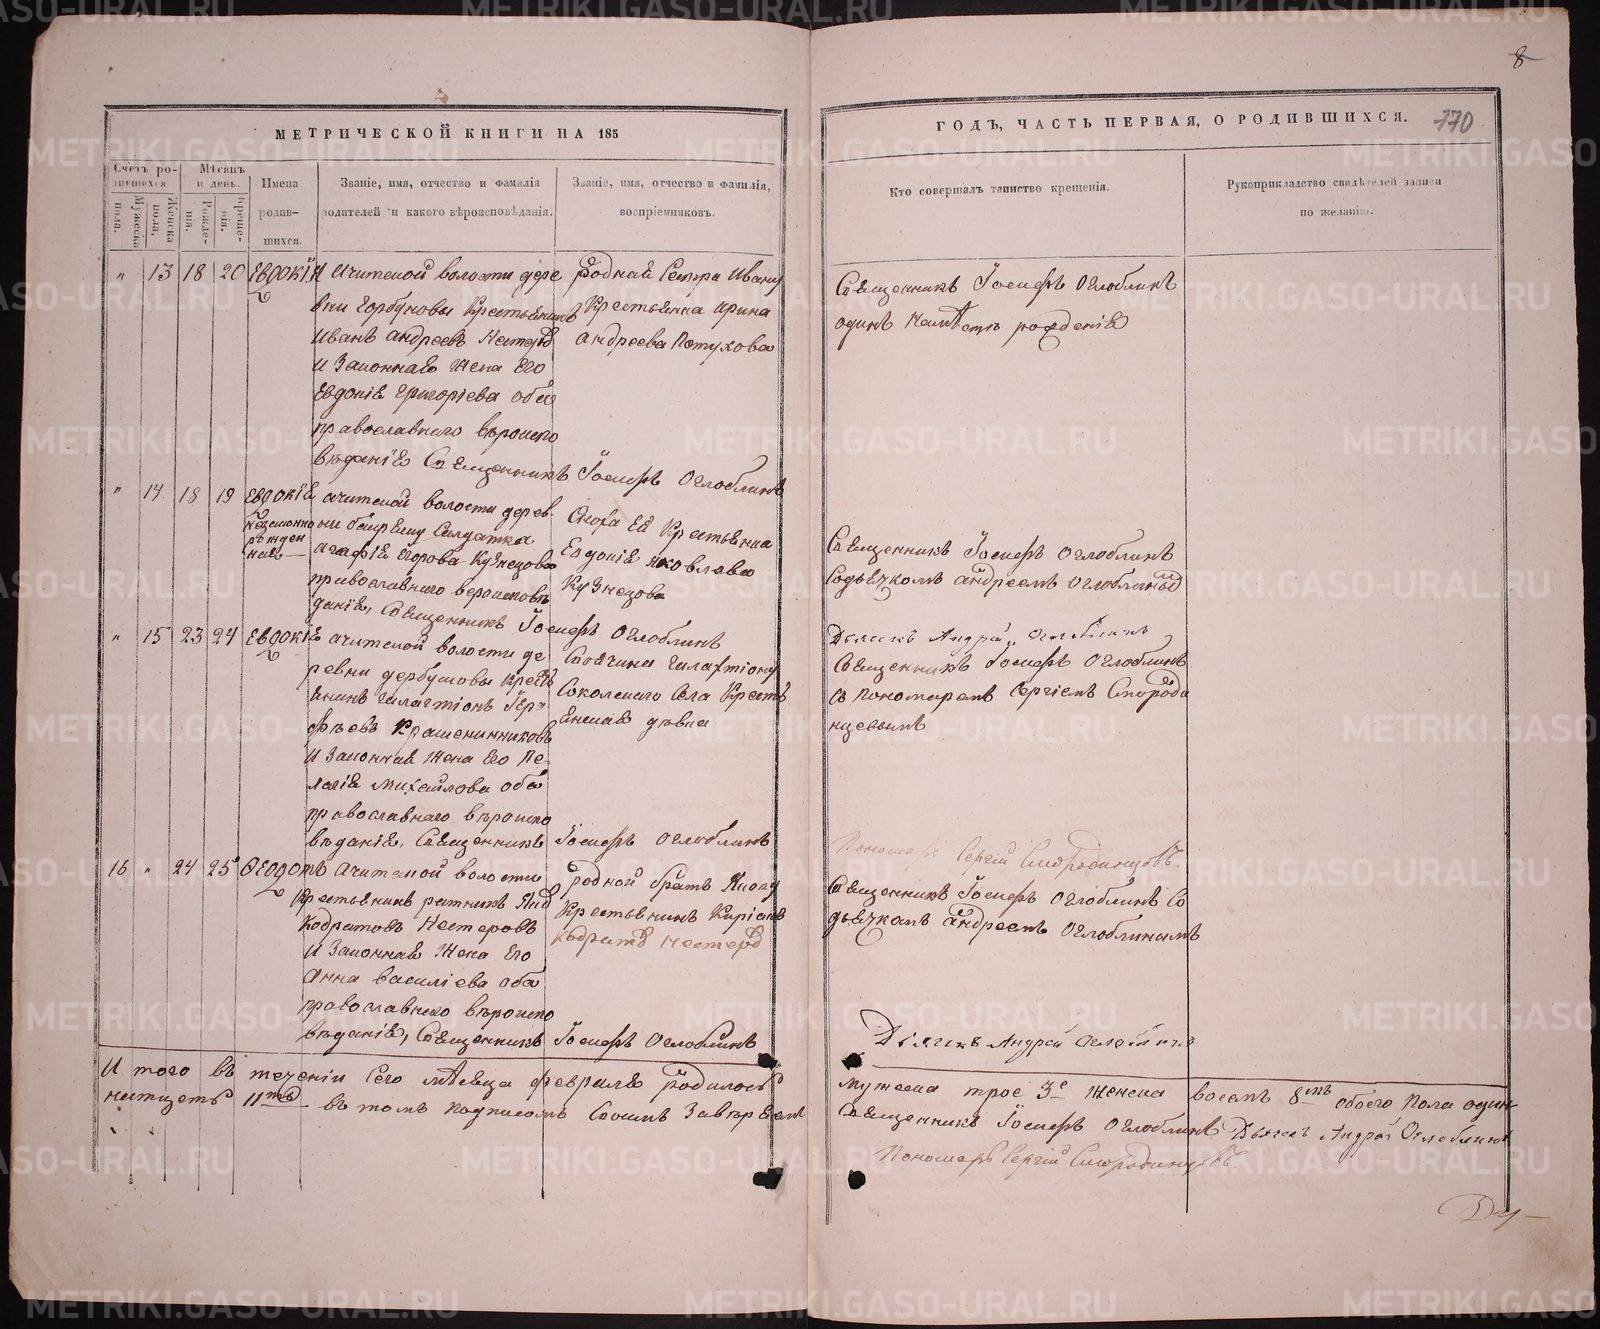 8
МЕТРИЧЕСКОЙ КНИГИ НА 185
ГОДЪ, ЧАСТЬ ПЕРВАЯ, О РОДИВШИХСЯ.
770
Счетъ родившихся
Мѣсяцъ и день.
Имена родившихся.
Званіе, имя, отчество и фамилія родителей и какого вѣроисповѣданія.
Званіе, имя, отчество и фамилія, воспріемниковъ.
Кто совершалъ таинство крещенія.
Рукоприкладство свидѣтелей записи по желанію.
Мужеска пола.
Женска пола,
Рожденія.
Крещенія.
" 13 18 20 Евдокія
Ачитской волости дере
вни Горбуновы Крестьянинъ
Иванъ Андреевъ Нестеровъ
и Законная Жена Его
Евдокіѣ Григоріева оба
православнаго вѣроиспо
вѣданіѣ Священникъ Іосифъ Оглоблинъ
Родная Сестра Ивану
Крестьянка Ирина
Андреева Потухова
Священникъ Іосифъ Оглоблинъ
одинъ рожденіѣ
" 14 18 19 Евдокіѣ
незаконно
рожден
ная
Ачитской волости дерев
ни Солдатка
Агафіѣ Егорова Кузнецова
православнаго вероисповѣ
даніѣ, Священникъ Іосифъ Оглоблинъ
Сноха Ей Крестьянка
Евдокіѣ Яковлева
Кузнецова
Священникъ Іосифъ Оглоблинъ
Содьячкомъ Андреемъ Оглоблинымъ
Дьячекъ Андрей Оглоблинъ
" 15 23 24 Евдокіѣ
Ачитской волости де
ревни Крестъ
янинъ Галактіонъ
Крашенинниковъ
и Законная Жена Его Пе
лагіѣ Михайлова оба
православнаго вѣроиспо
вѣданіѣ, Священникъ Іосифъ Оглоблинъ
Галактіону
Сокольскаго Села Кресть
янская дѣвка
Священникъ Іосифъ Оглоблинъ
съ пономаремъ Сергіемъ Смороди
нцевымъ
Пономарь Сергій Смородинцовъ.
16 " 24 25 Ѳеодоръ
Ачитской волости
Крестьянинъ
Кодратовъ Нестеровъ
и Законная Жена Его
Анна Василіева оба
православнаго вѣроиспо
вѣданіѣ, Священникъ Іосифъ Оглоблинъ
Родной братъ
Крестьянинъ
Нестеровъ
Священникъ Іосифъ Оглоблинъ Со
дьячкомъ Андреемъ Оглоблинымъ
Дьячекъ Андрей Оглоблинъ
И того въ теченіи Сего Мѣсяца февраля Родилось мужеска трое 3е женска восемь 8мъ обоего пола один
натцеть 11ть въ томъ подписомъ Своимъ Священникъ Іосифъ Оглоблинъ Дьячекъ Андрей Оглоблинъ
Пономарь Сергій Смородинцовъ.
METRIKI.GASO-URAL.RU